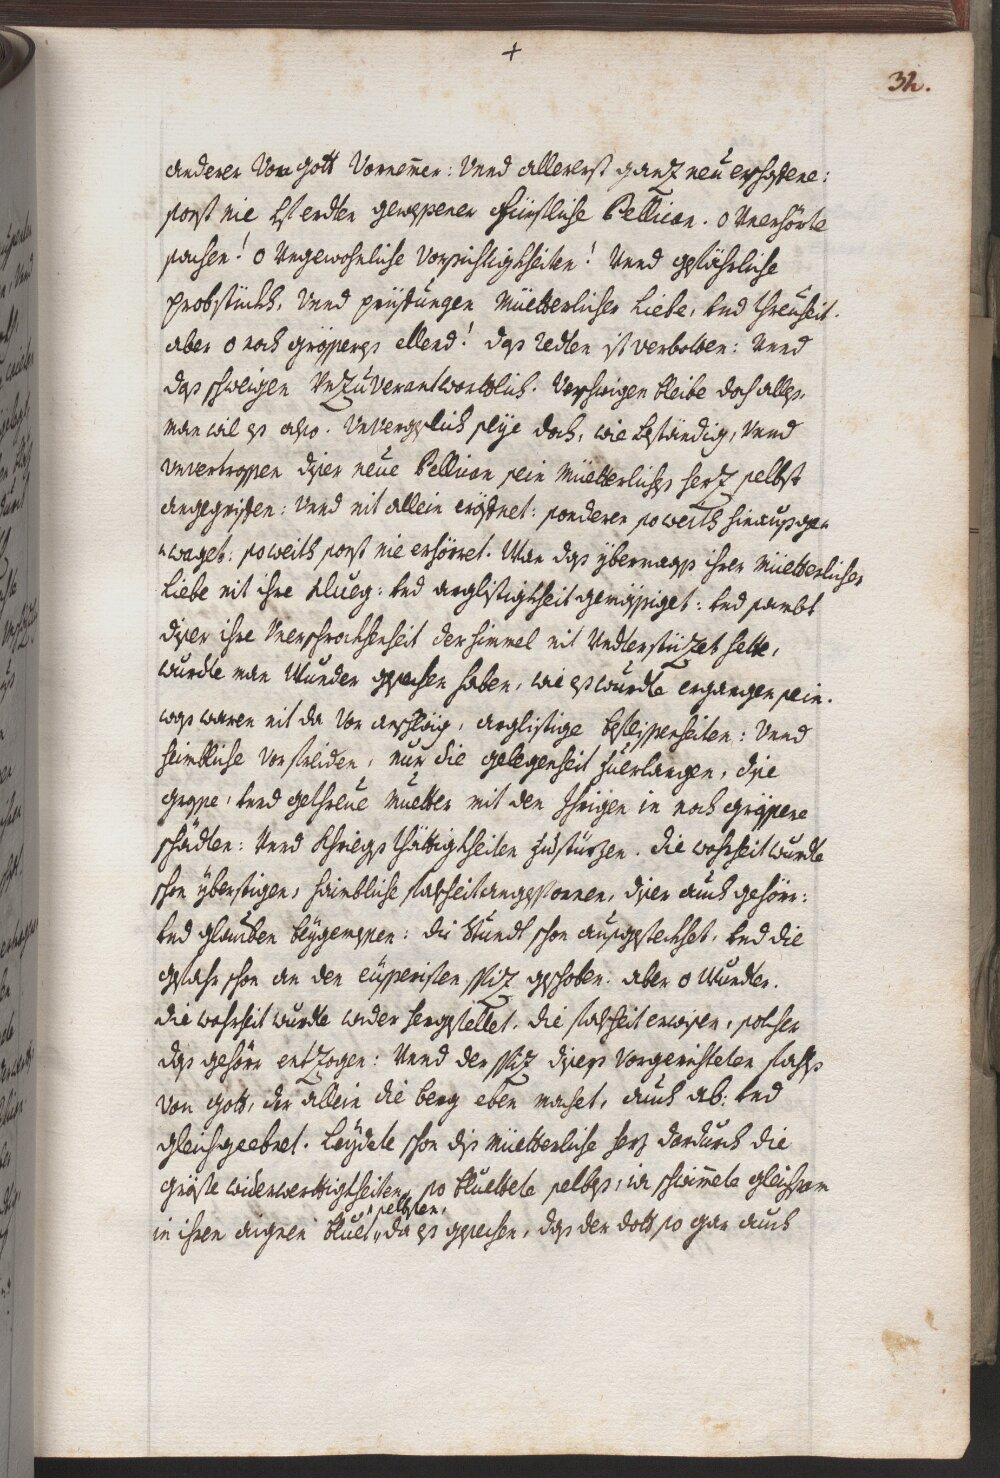 +
32.
anderer Von Gott Vornemer: Vnnd allererst gantz neu erschaffene:
sonst nie Ehl erdter gewessener Fürstliche Pellican. o Vnerhörte
sachen! o Vngewohnliche Vorsichtigkheiten! Vnnd gefährliche
probstückh, Vnnd prüeffungen Müetterlicher Liebe, vnd threüheit.
aber o noch grösseres ellend! das redten ist verbotten: Vnnd
das schweigen Vnzuverantworttlich. Verschwigen bleibe doch alles.
man wil es also. Vnvergeslich seye doch, wie beständig, Vnnd
Vnvertrossen diser neue Pellican sein Müetterliches hertz selbst
angegriffen: Vnnd nit allein eröffnet: sonderen so weith hinausge„
„waget: so weith sonst nie erhörret. Wan das ybermass ihrer Müetterlicher
Liebe nit ihre klueg: vnd arglistigkheit gemässiget: vnd sambt
diser ihre Vnerschrockhenheit der himmel nit Vndterstüzet hette,
wurdte man Wunder gesechen haben, wie es wurdte ergangen sein.
was waren nit da Vor anschläg, arglistige beflissenheiten: Vnnd
heimbliche Vorstreiden, nur die gelegenheit zuerlangen, dise
grosse, vnnd getheüe Muetter mit den Ihrigen in noch grössere
schädten: Vnnd khriegs thättigkheiten zustürzen. die wahrheit wurdte
schon yberstigen, heimbliche falschheit angesponnen, diser auch gehörr:
vnd glauben beygemessen: die Stundt schon aussgesteckhet, vnd die
gefahr schon an den eüsseristen Spiz geschoben. aber o Wundter.
die wahrheit wurdte wider hergestellet. die falschheit erwisen, solcher
das gehörr entzogen: Vnnd der Spiz dises Vorgerichteten fahls
Von Gott, der allein die berg eben machet, auch ab: vnd
gleichgeebnet. Leydete schon dis Müetterliche herz dardurch die
gröste widerwerttigkheiten, so bluettete selbes, ia schwimete gleichsam
in ihren aignen bluet „selbsten, da es gesechen, das der dott so gar auch